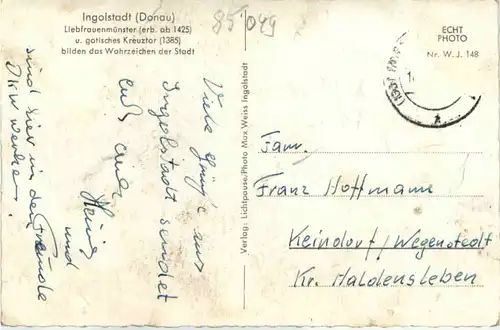 Ingolstadt (Donau)
Liebfrauenmünster (erb. ab 1425)
u. gotisches Kreuztor (1385)
bilden das Wahrzeichen der Stadt
85 049
ECHT
PHOTO
Nr. W. J. 148
Viele Grüße aus
Ingolstadt sendet
euch euer
Heinz
und
Freunde
sind hier in der
DKW werken!
Verlag: Lichtpause-Photo Max Weiss Ingolstadt
Fam.
Franz Hoffmann
Keindorf/Wegenstedt
Kr. Haldensleben